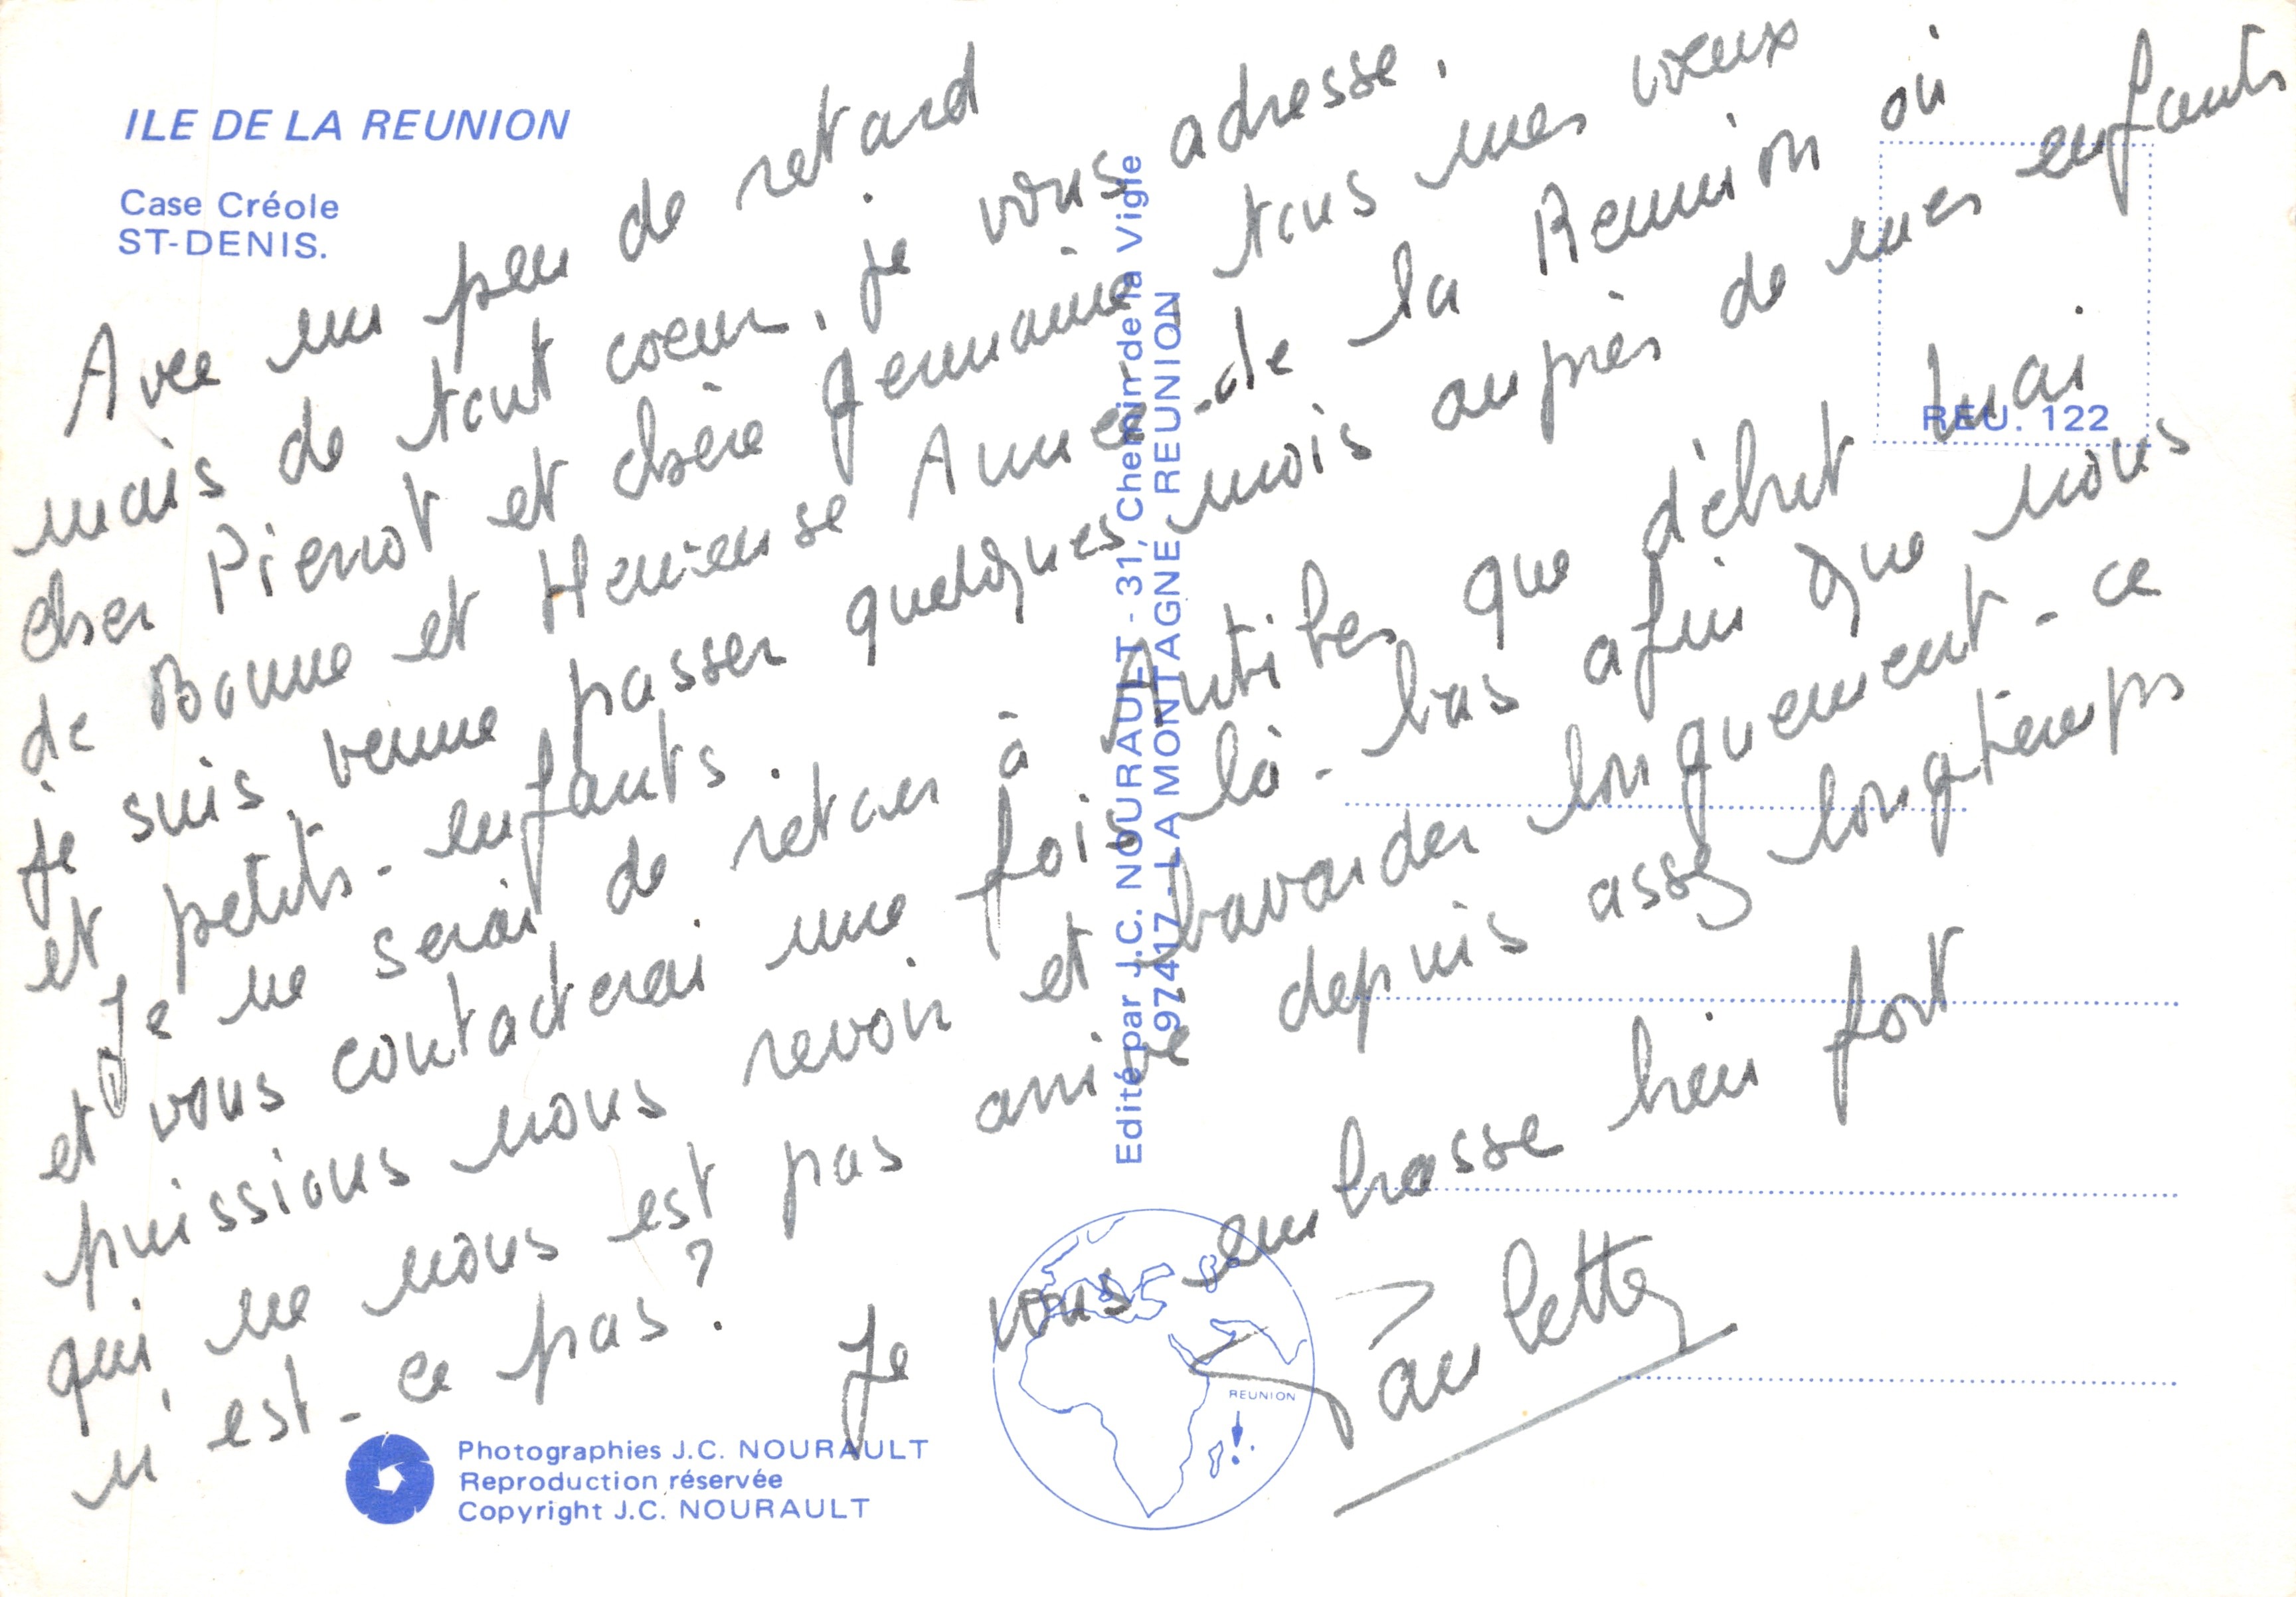 ILE DE LA REUNION
Case Créole
ST-DENIS.
Avec un peu de retard
mais de tout coeur, je vous adresse,
cher Pierrot et chère Germaine tous mes voeux
de Bonne et Heureuse Année de la Reunion où
je suis venue passer quelques mois auprès de mes enfants
et petits-enfants.
Je ne serai de retour à Antibes que début mai
et vous contacterai une fois là-bas afin que nous
puissions nous revoir et bavarder longuement - ce
qui ne nous est pas arrivé depuis assez longtemps
n'est-ce pas ?
Je vous embrasse bien fort
Paulette
Edité par J.C. NOURAULT - 31, Chemin de la Vigie
97417 - LA MONTAGNE REUNION
REU. 122
REUNION
Photographies J.C. NOURAULT
Reproduction réservée
Copyright J.C. NOURAULT